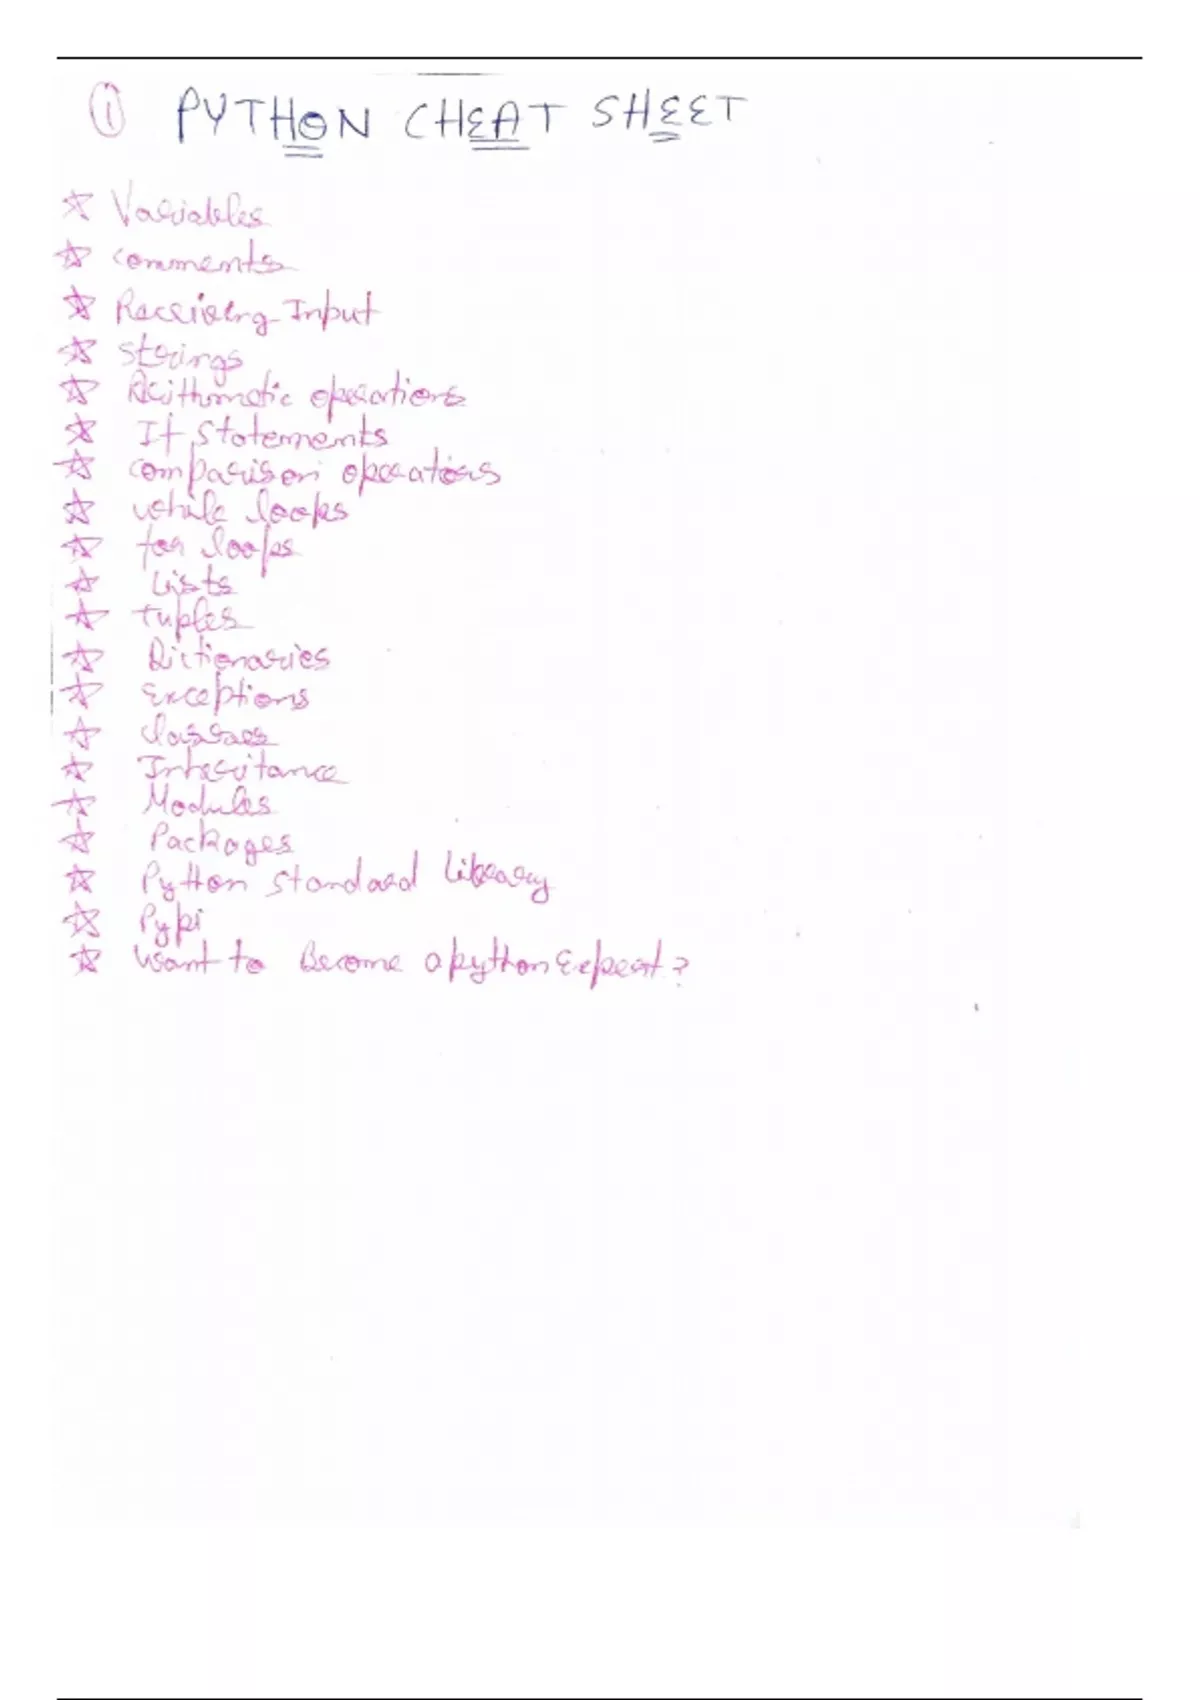 ① PYTHON CHEAT SHEET
☆ Variables
☆ comments
☆ Receiving Input
☆ strings
☆ Arithmetic operations
☆ If statements
☆ comparison operators
☆ while loops
☆ for loops
☆ Lists
☆ tuples
☆ Dictionaries
☆ Exceptions
☆ classes
☆ Inheritance
☆ Modules
☆ Packages
☆ Python standard library
☆ Pypi
☆ want to Become a python Expert?